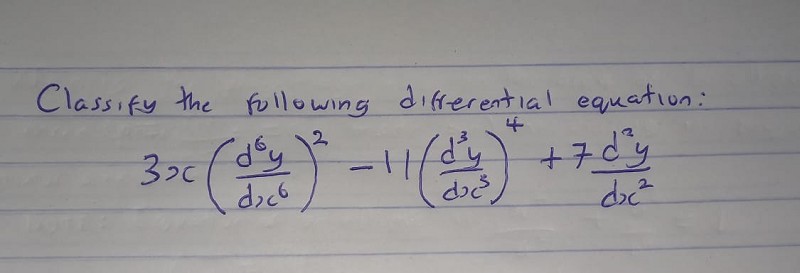 Classify the following differential equation:
3x (d⁶y/dx⁶)² - 11 (d³y/dx³)⁴ + 7 d²y/dx²